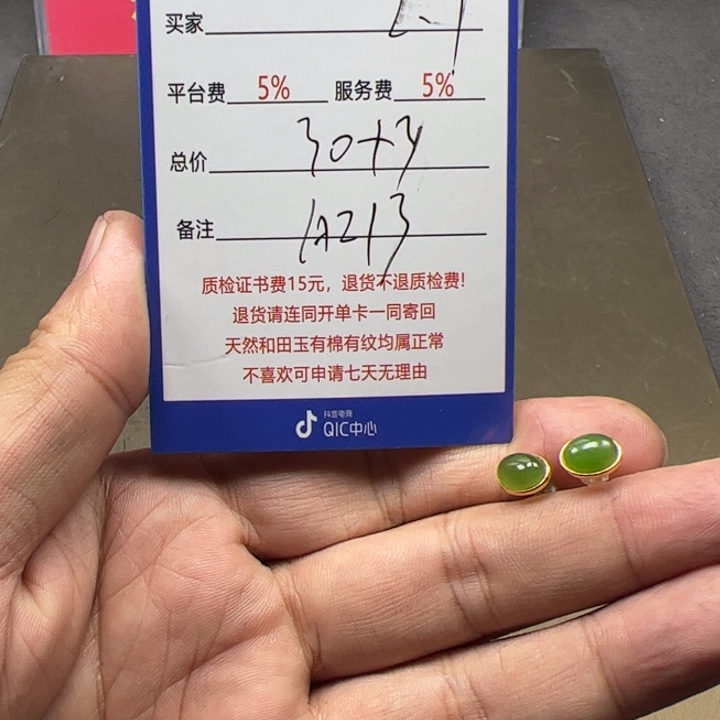 买家
平台费 5% 服务费 5%
总价 30+3
备注
质检证书费15元，退货不退质检费!
退货请连同开单卡一同寄回
天然和田玉有棉有纹均属正常
不喜欢可申请七天无理由
抖音电商
QIC中心